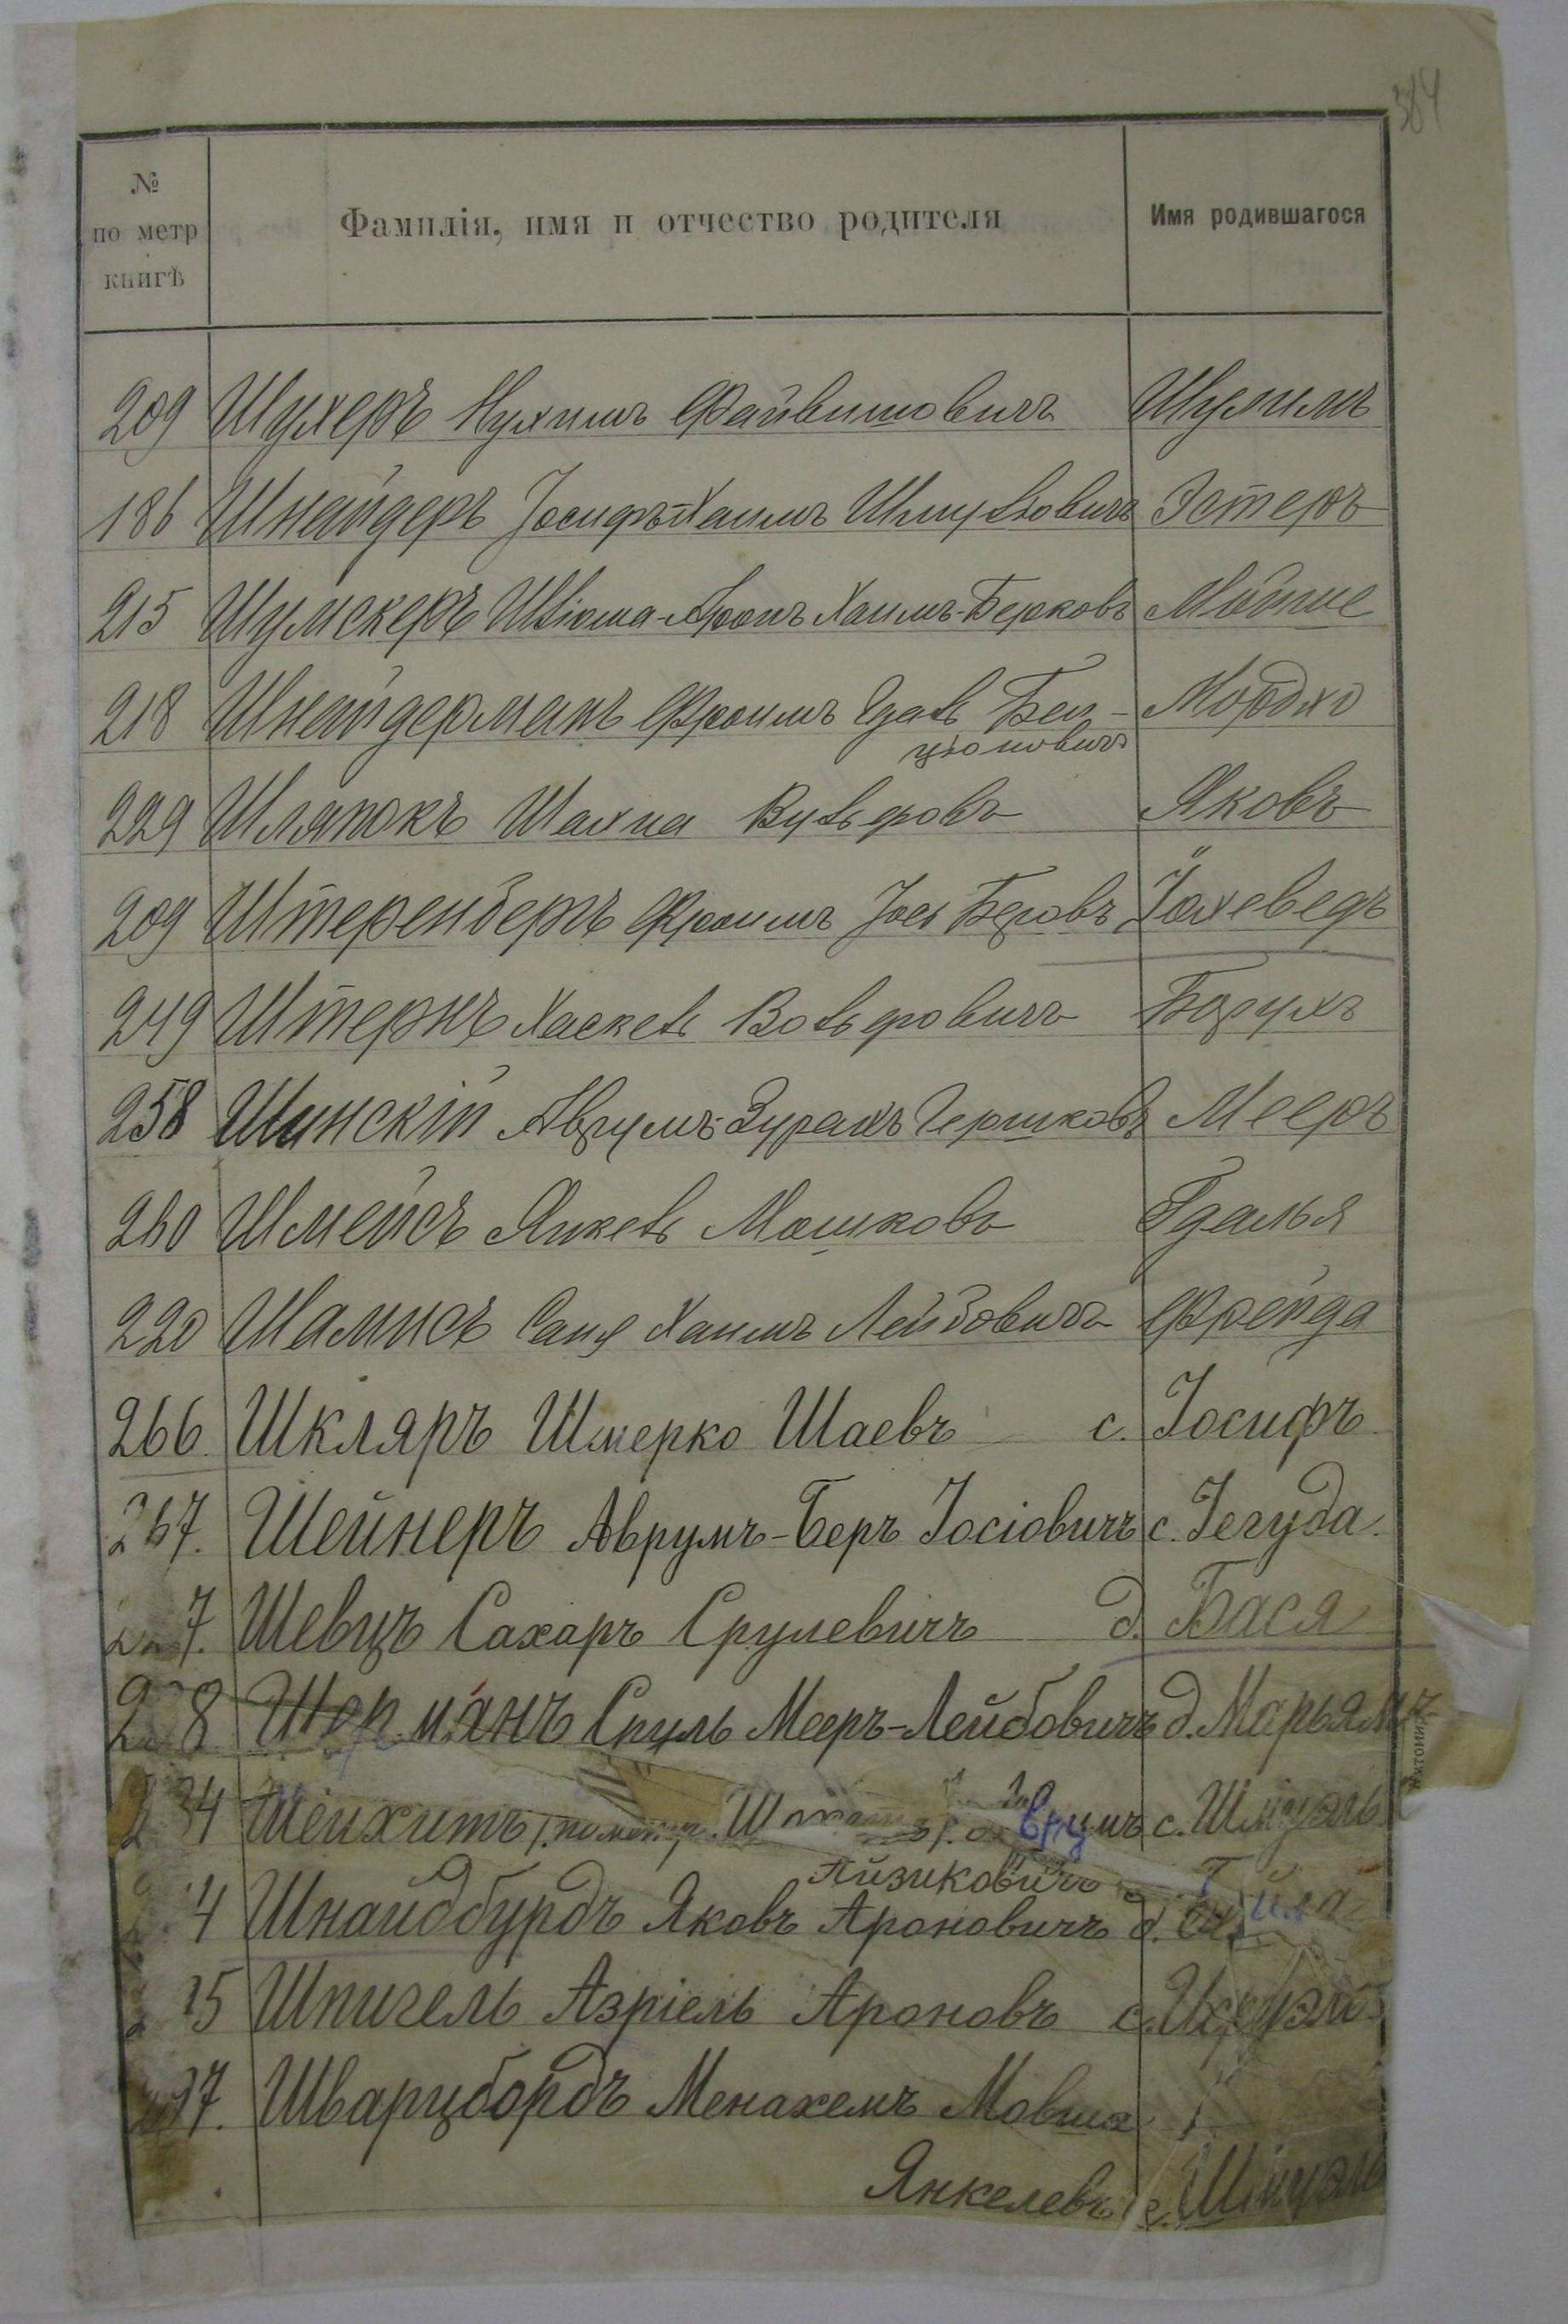 384
№ по метр книгѣ Фамилія, имя и отчество родителя Имя родившагося
209 Шухеръ Нухимъ Файвишовичъ Шулимъ
186 Шнайдеръ Іосифъ-Хаимъ Шмулövичъ Эстеръ
215 Шумскеръ Шліома-Аронъ Хаимъ-Берковъ
218 Шнайдерманъ Фроимъ Бен- Мордко
ціоновичъ
229 Шляпокъ Шахна Вульфовъ Яковъ
209 Штеренбергъ Фроимъ Іось Беровъ Іохеведъ
249 Штернъ Хаскель Вольфовичъ Борухъ
258 Шинскій Аврумъ-Зурахъ Гершковъ Мееръ
260 Шмейсъ Янкель Мошковъ Гдалья
220 Шамисъ Саня Хаимъ Лейбовичъ Фрейда
266. Шкляръ Шмерко Шаевъ с. Іосифъ
267. Шейнеръ Аврумъ-Беръ Іосіовичъ с. Іегуда.
7. Шевцъ Сахаръ Срулевичъ д. Бася
8 Шерманъ Сруль Мееръ-Лейбовичъ д. Марьямъ
34 Шейхитъ врумъ с. Шмуэль
Айзиковичъ
4 Шнайдбурдъ Яковъ Ароновичъ д.
15 Шпигель Азріель Ароновъ с.
97. Шварцбордъ Менахемъ Мовша
Янкелевъ с. Шмуэль